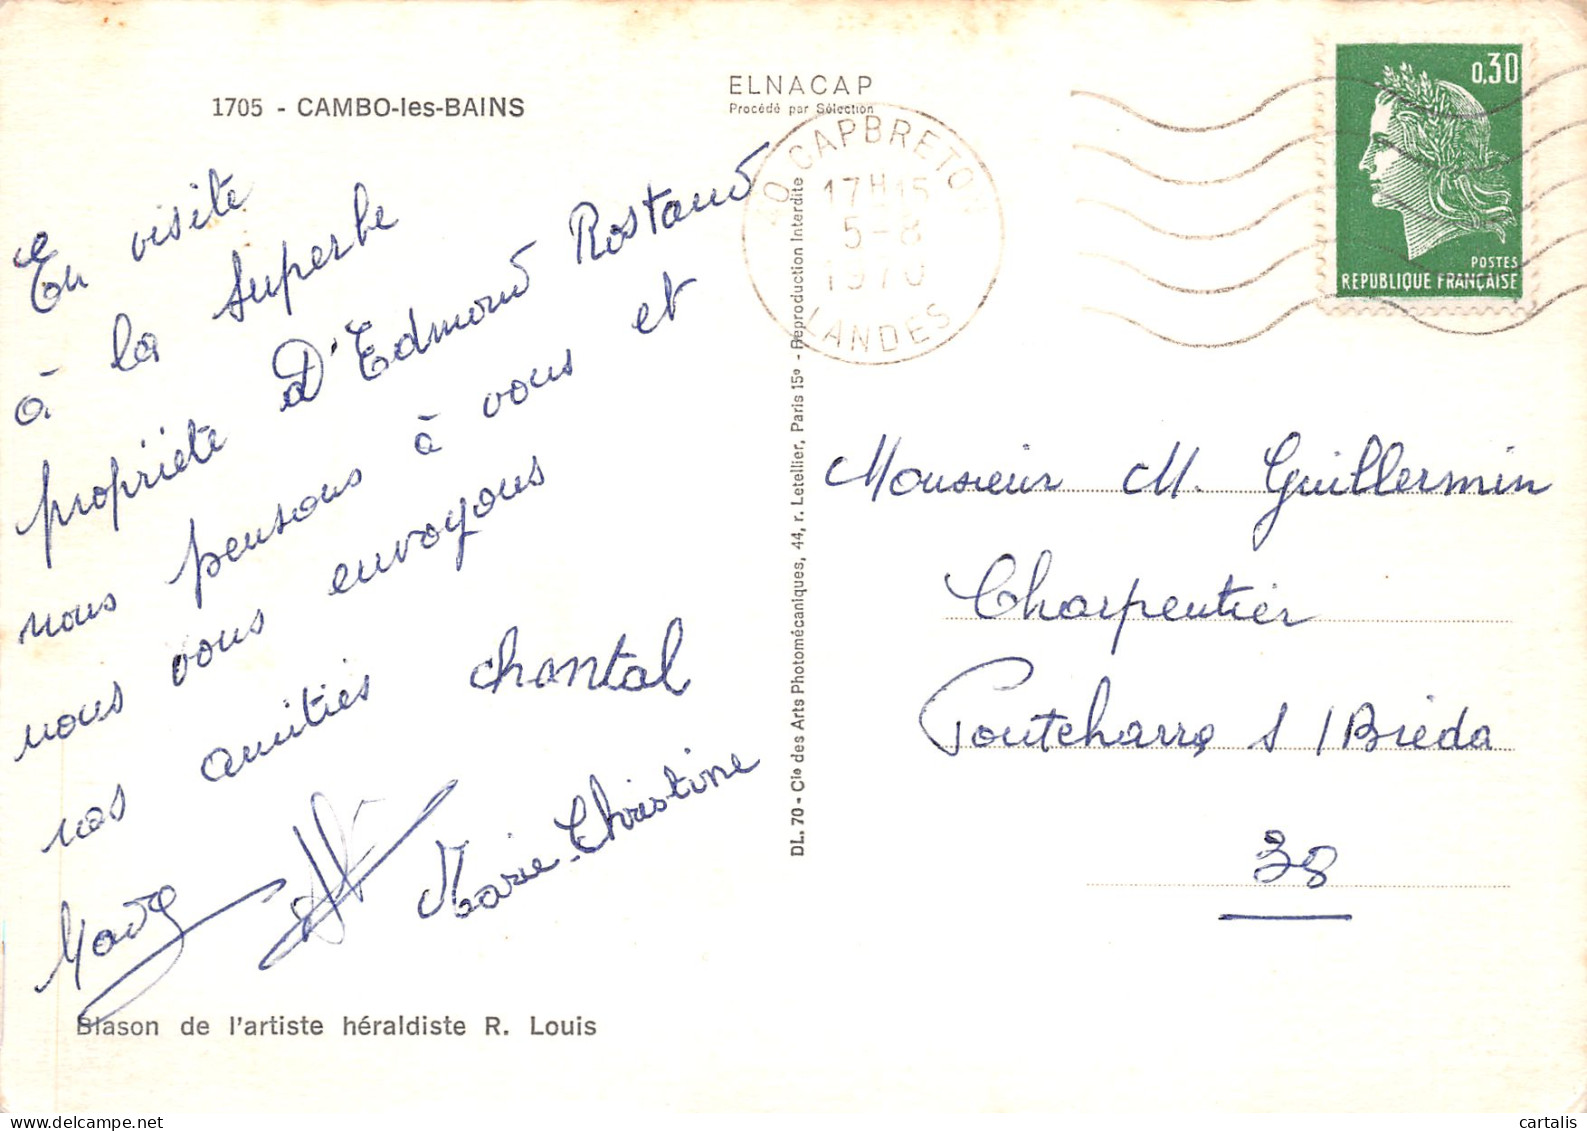 1705 - CAMBO-les-BAINS
ELNACAP
Procédé par Sélection
En visite
à la superbe
propriète D'Edmond Rostand
nous pensons à vous et
nous vous envoyons
nos amitiés Chantal
Marie-Christine
Blason de l'artiste héraldiste R. Louis
DL. 70 - Cie des Arts Photomécaniques, 44, r. Letellier, Paris 15e - Reproduction Interdite
40 CAPBRETON
17H15
5-8
1970
LANDES
0,30
POSTES
REPUBLIQUE FRANÇAISE
Monsieur M. Guillermin
Charpentier
Pontcharra s/Breda
38
cartalis